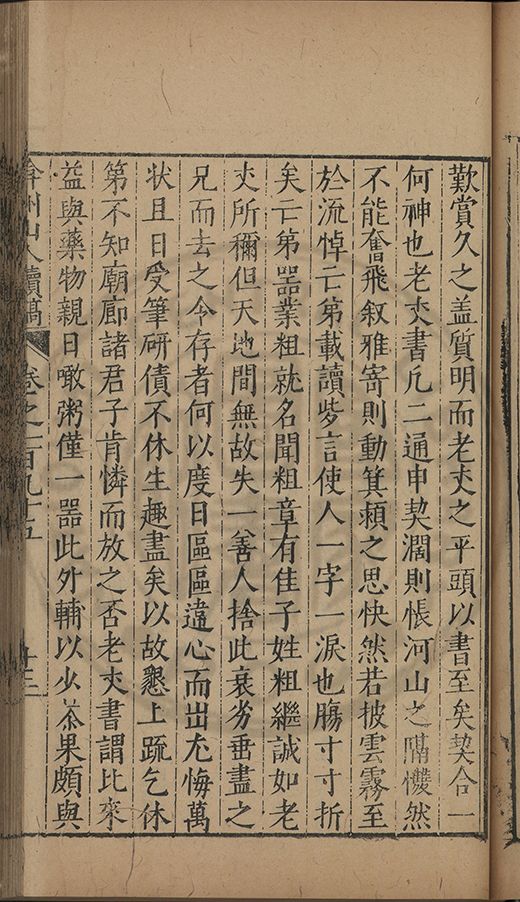 歎賞久之盖質明而老丈之平頭以書至矣契合一
何神也老丈書凢二通申契濶則悵河山之隔㦬然
不能奮飛叙雅寄則動箕潁之思快然若披雲霧至
於流悼亡弟載讀㱔言使人一字一淚也膓寸寸折
矣亡弟噐業粗就名聞粗章有佳子姓粗繼誠如老
丈所稱但天地間無故失一善人捨此衰劣垂盡之
兄而去之今存者何以度日區區違心而出尤悔萬
状且日受筆研債不休生趣盡矣以故懇上䟽乞休
第不知廟廊諸君子肯憐而放之否老丈書謂比來
益與藥物親日噉粥僅一器此外輔以少茶果頗與
弇州山人續稿 卷之一百九十五 廿三